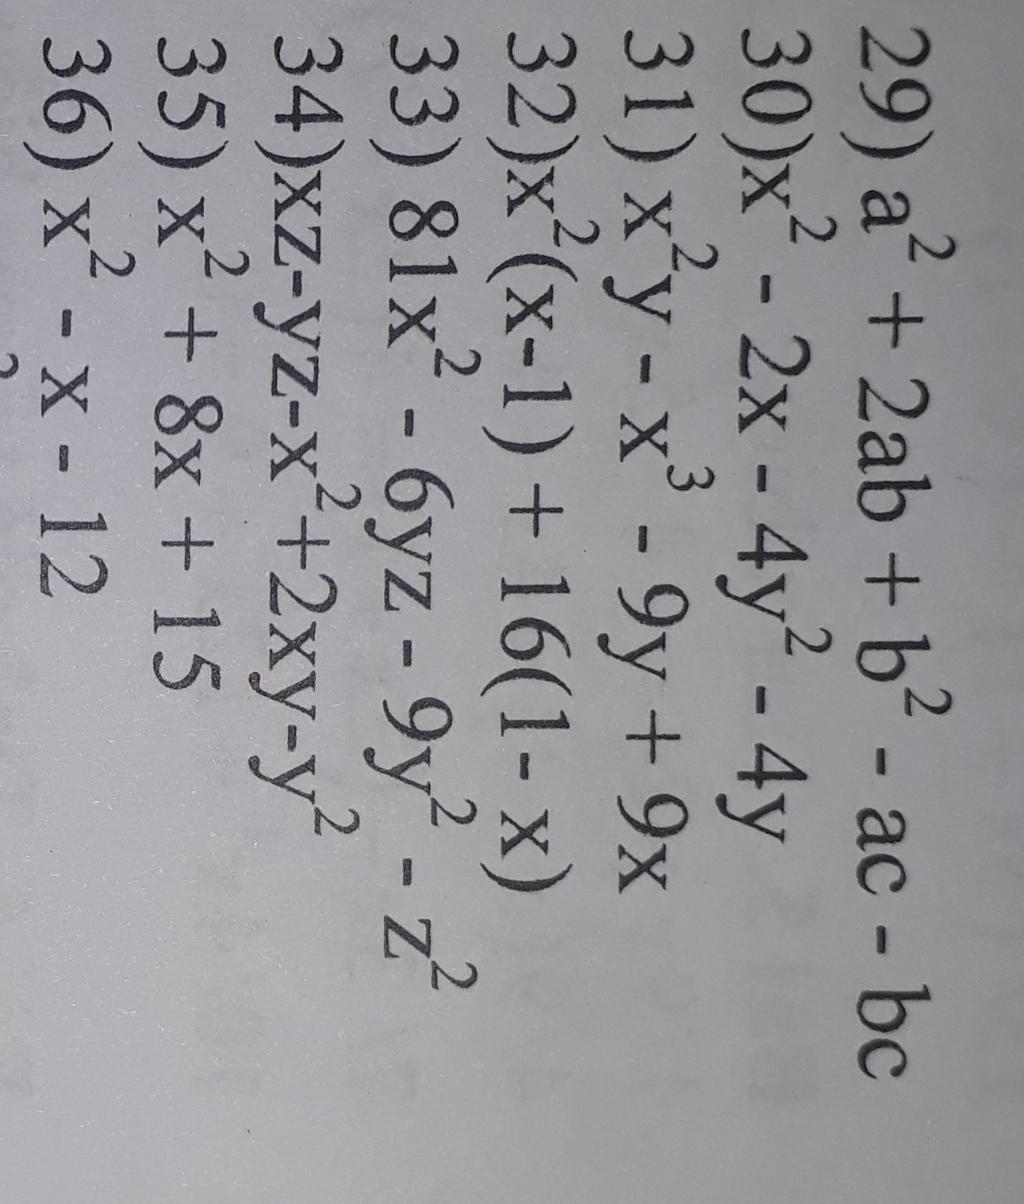 29) a² + 2ab + b² - ac - bc
30)x² - 2x - 4y² - 4y
31) x²y - x³ - 9y + 9x
32)x²(x-1) + 16(1- x)
33) 81x² - 6yz - 9y² - z²
34)xz-yz-x²+2xy-y²
35) x² + 8x + 15
36) x² - x - 12